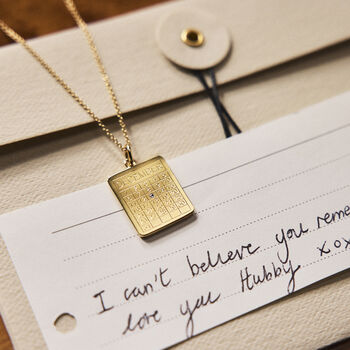 DECEMBER
I can't believe you reme
love you Hubby xox